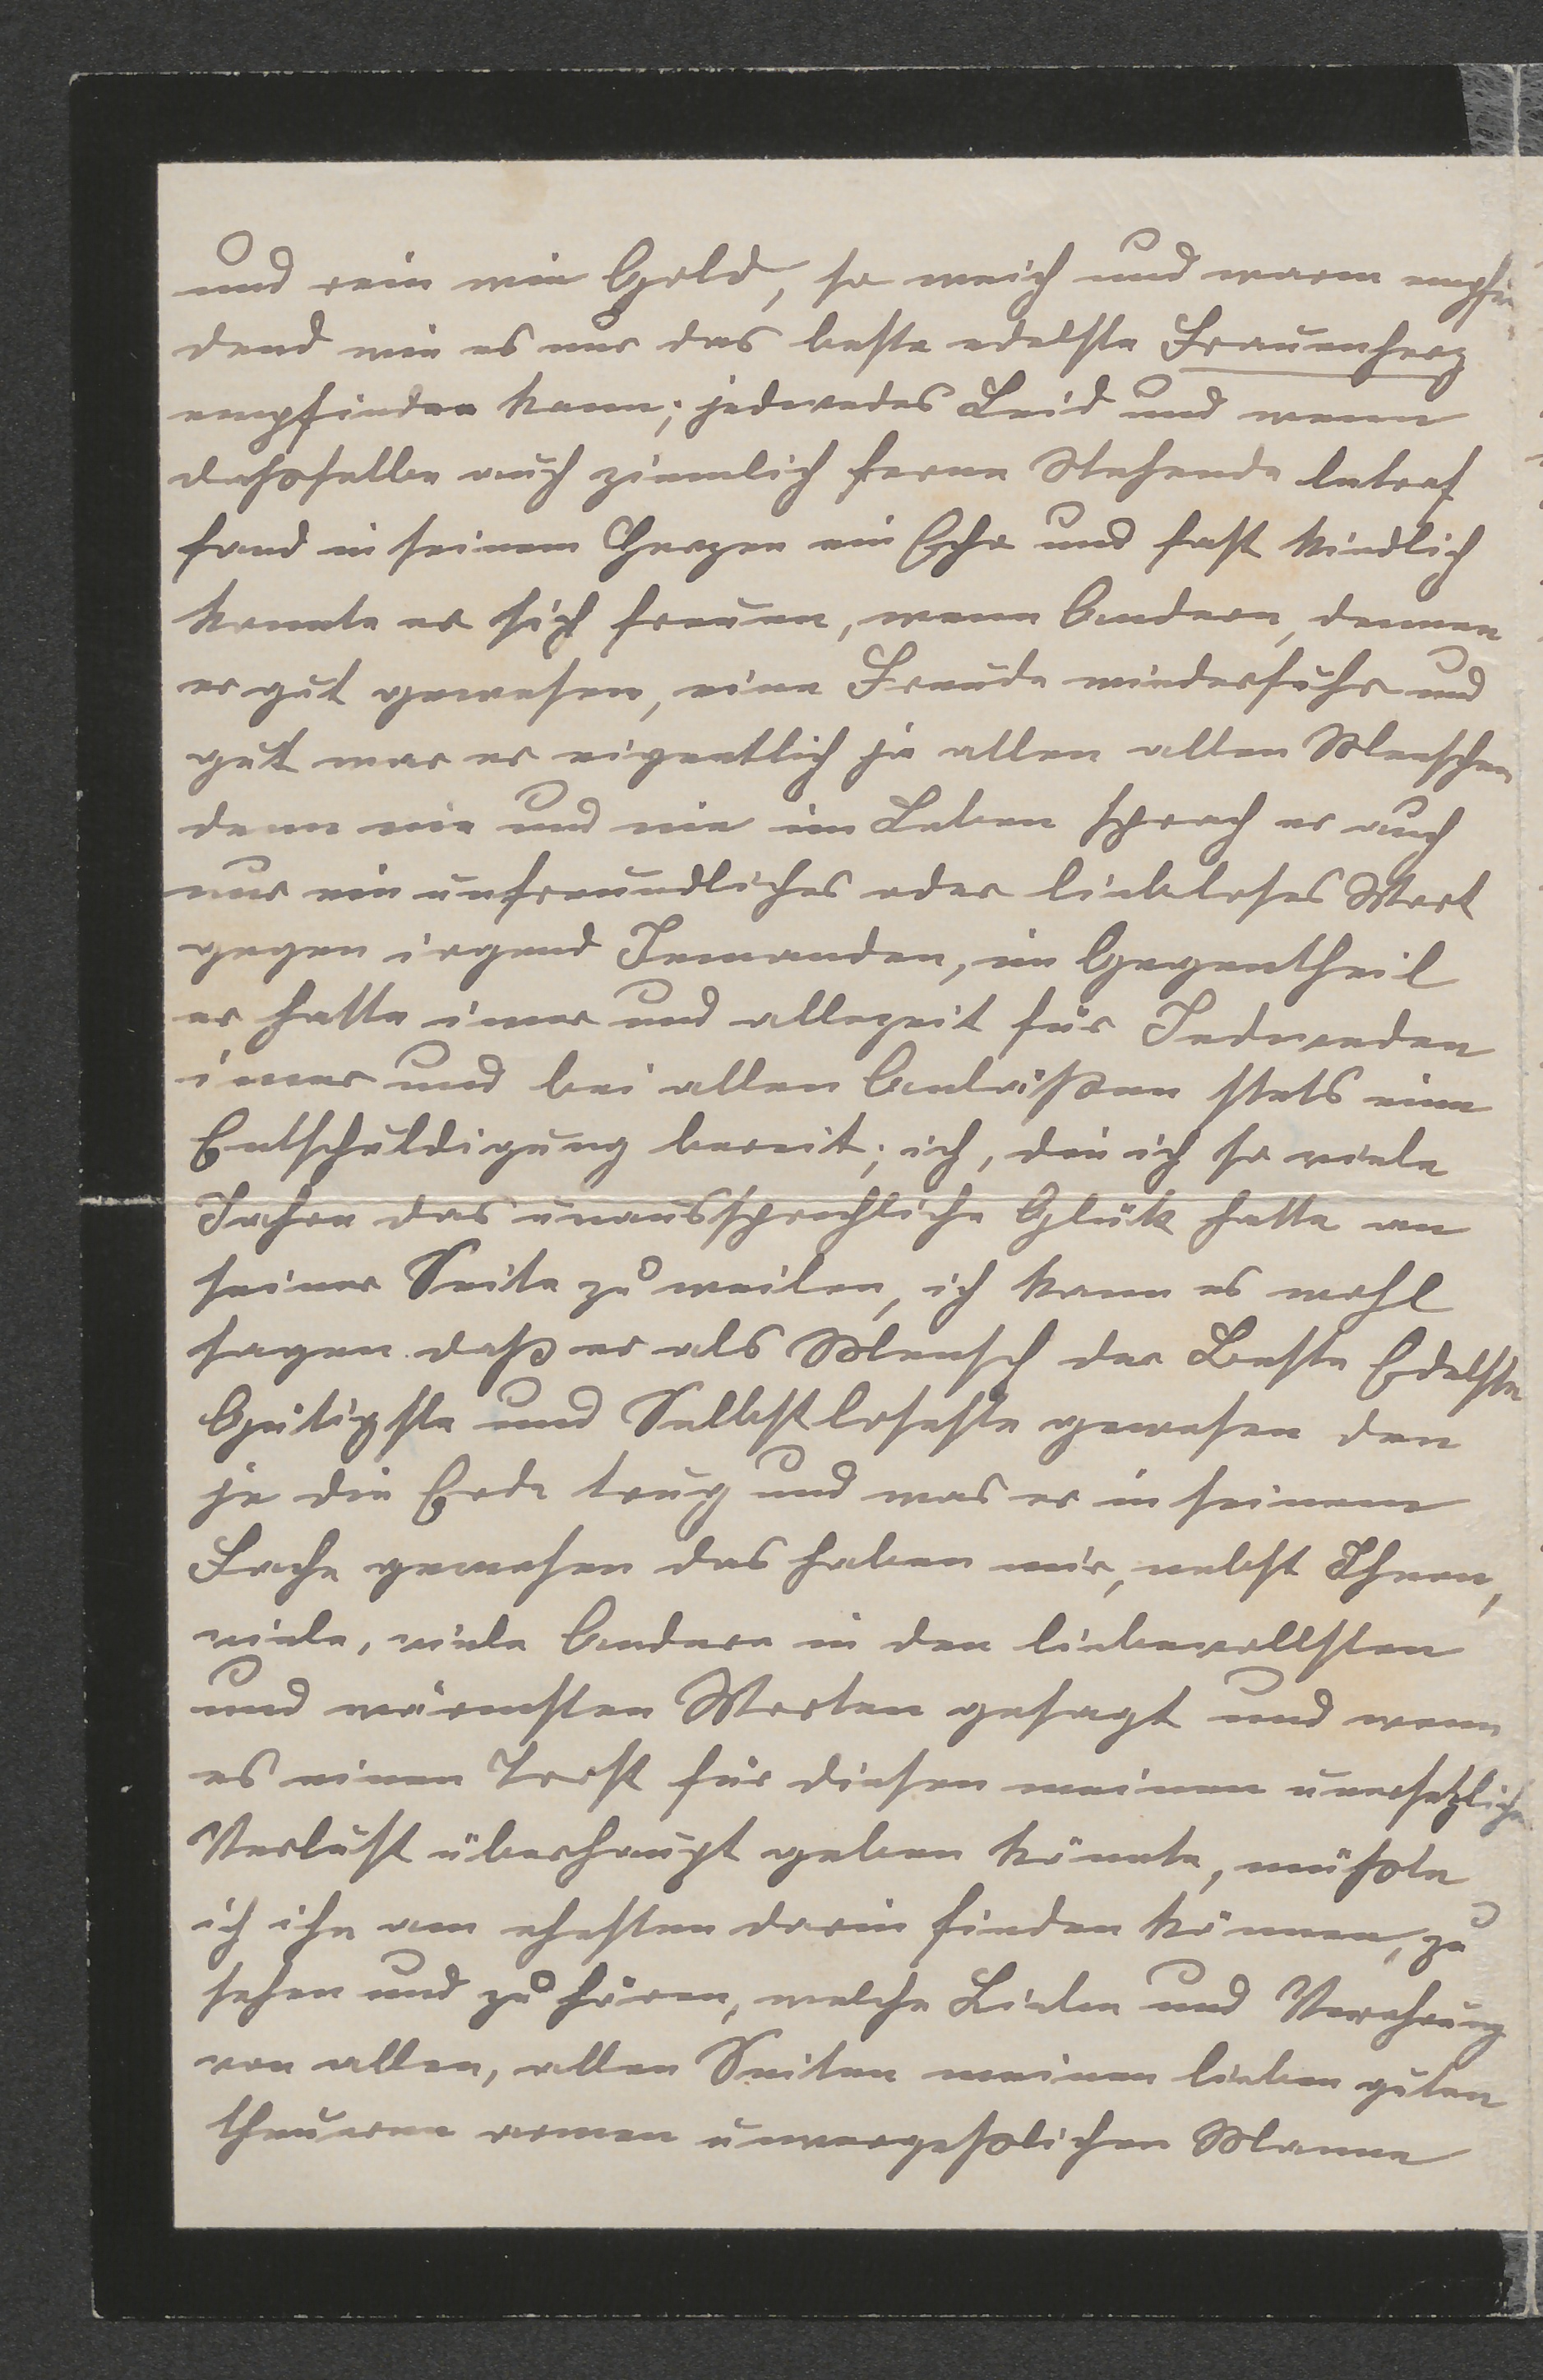 und rein wie Gold, so weich und warm empfin
dend wie es nur das beste edelste Frauenherz
empfinden kann; jedwedes Leid und wenn
daßselbe auch ziemlich ferne Stehende betraf
fand in seinem Herzen ein Echo und fast kindlich
konnte er sich freuen, wenn Andern, dennen
er gut gewesen, eine Freude wiederfuhr und
gut war er eigentlich ja allen allen Menschen
denn nie und nie im Leben sprach er auch
nur ein unfreundliches oder liebloses Wort
gegen irgend Jemanden, im Gegentheil
er hatte imer und allezeit für Jedweden
imer und bei allen Anläßen stets eine
Entschuldigung bereit; ich, die ich so viele
Jahre das unaussprechliche Glük hatte an
seiner Seite zu weilen, ich kann es wohl
sagen daß er als Mensch der Beste Edelste
Gütigste und Selbstloseste gewesen den
je die Erde trug und was er in seinem
Fache gewesen das haben mir, nebst Ihnen,
viele, viele Andere in den liebevollsten
und wärmsten Worten gesagt und wenn
es einen Trost für diesen meinen unersetzlichen
Verlust überhaupt geben könnte, müßte
ich ihn am ehesten darin finden können, zu
sehen und zu hören, welche Liebe und Verehrung
von allen, allen Seiten meinen lieben guten
theueren armen unvergeßlichen Manne